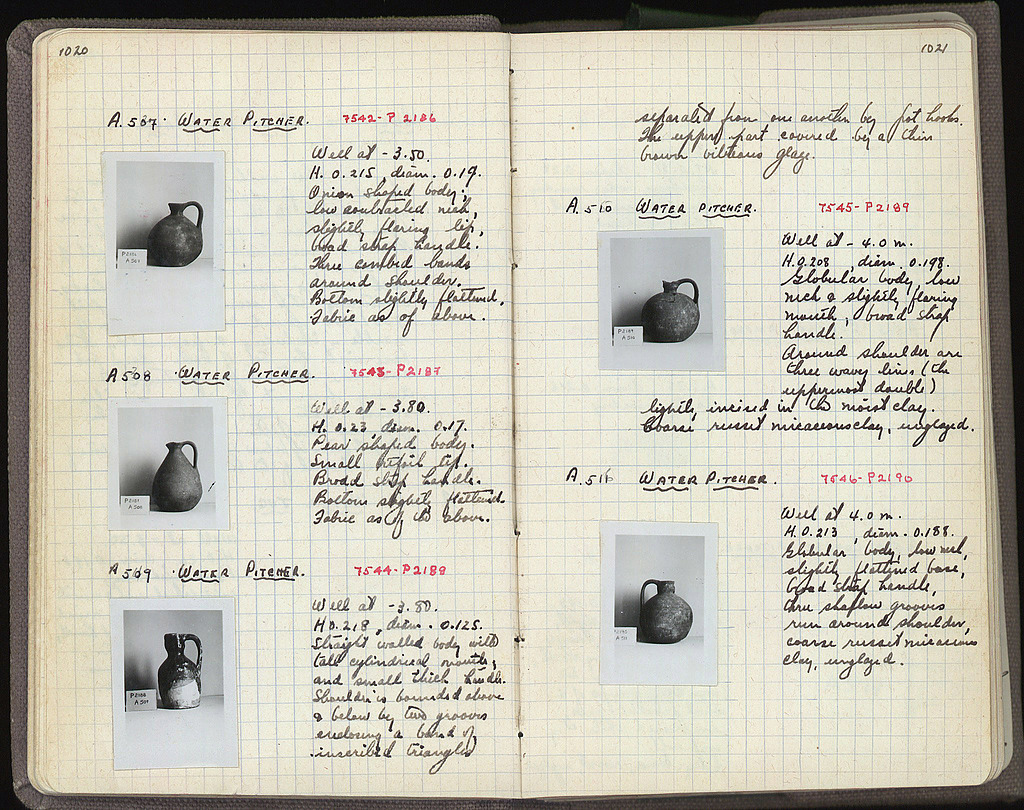 1020
A.507. WATER PITCHER. 7542-P 2186
Well at -3.50.
H. 0.215, diam. 0.19.
Onion shaped body:
low contracted neck,
slightly flaring lip,
broad strap handle.
Three combed bands
around shoulder.
Bottom slightly flattened.
Fabric as of above.
A 508 WATER PITCHER. 7543-P2187
Well at -3.80.
H. 0.23 diam. 0.17.
Pear shaped body.
Small trefoil lip.
Broad strap handle.
Bottom slightly flattened.
Fabric as of the above.
P2187
A 509 WATER PITCHER. 7544-P2188
Well at -3.80.
H 0.218, diam. 0.125.
Straight walled body with
tall cylindrical mouth,
and small thick handle.
Shoulder is bounded above
& below by two grooves
enclosing a band of
inscribed triangles
P2188
A 509
1021
separated from one another by pot hooks.
The upper part covered by a thin
brown vitrious glaze.
A.510 WATER PITCHER. 7545-P2189
Well at -4.0 m.
H. 0.208 diam. 0.198.
Globular body, low
neck & slightly flaring
mouth, broad strap
handle.
Around shoulder are
three wavy lines (the
uppermost double)
lightly incised in the moist clay.
Coarse russet micaceous clay, unglazed.
P2189
A 510
A.511 WATER PITCHER. 7546-P2190
Well at 4.0 m.
H. 0.213, diam. 0.188.
Globular body, low neck,
slightly flattened base,
broad strap handle,
three shallow grooves
run around shoulder,
coarse russet micaceous
clay, unglazed.